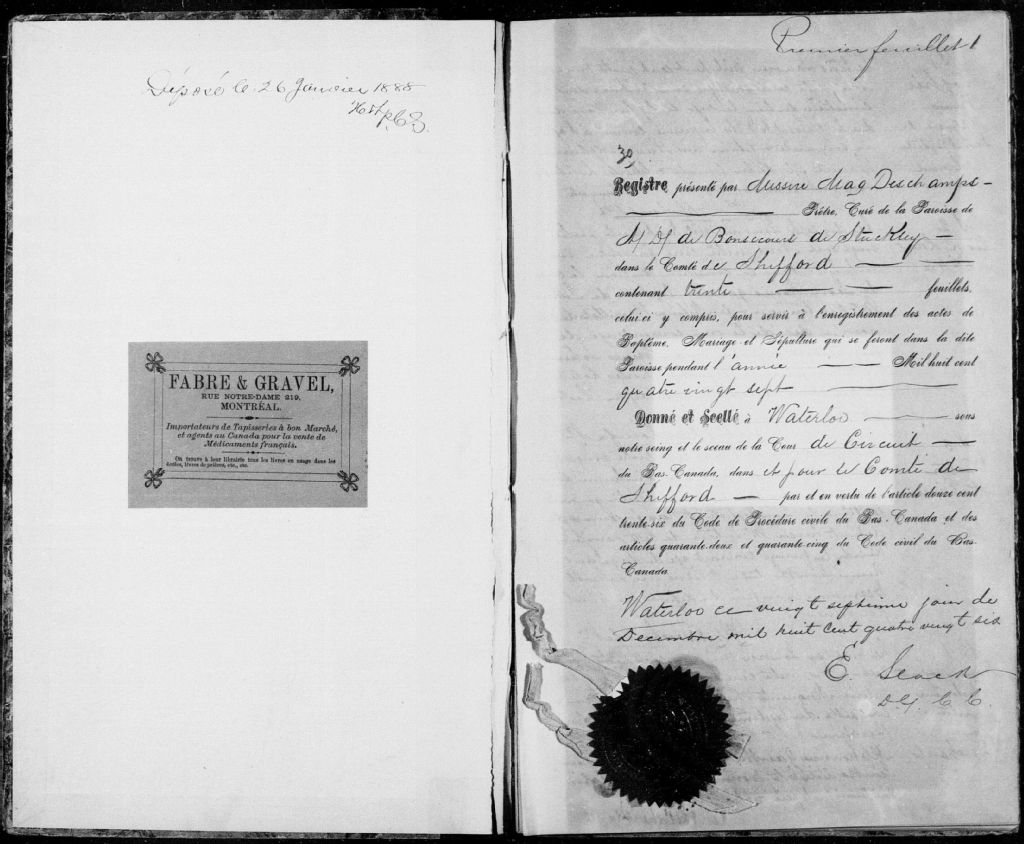 Déposé le 26 Janvier 1888
FABRE & GRAVEL,
RUE NOTRE-DAME 219,
MONTRÉAL.
Importateurs de Tapisseries à bon Marché,
et agents au Canada pour la vente de
Médicaments français.
On trouve à leur librairie tous les livres en usage dans les
écoles, livres de prières, etc., etc.
Premier feuillet 1
Registre présenté par Messire Deschamps
Prêtre, Curé de la Paroisse de
de Bonsecours de Stuckley
dans le Comté de Shefford
contenant trente feuillets,
celui-ci y compris, pour servir à l'enregistrement des actes de
Baptême, Mariage et Sépulture qui se feront dans la dite
Paroisse pendant l'année Mil huit cent
quatre vingt sept
Donné et Scellé à Waterloo sous
notre seing et le sceau de la Cour de Circuit
du Bas-Canada, dans et pour le Comté de
Shefford par et en vertu de l'article douze cent
trente-six du Code de Procédure civile du Bas-Canada et des
articles quarante-deux et quarante-cinq du Code civil du Bas-
Canada
Waterloo ce vingt septième jour de
Decembre mil huit Cent quatre vingt six